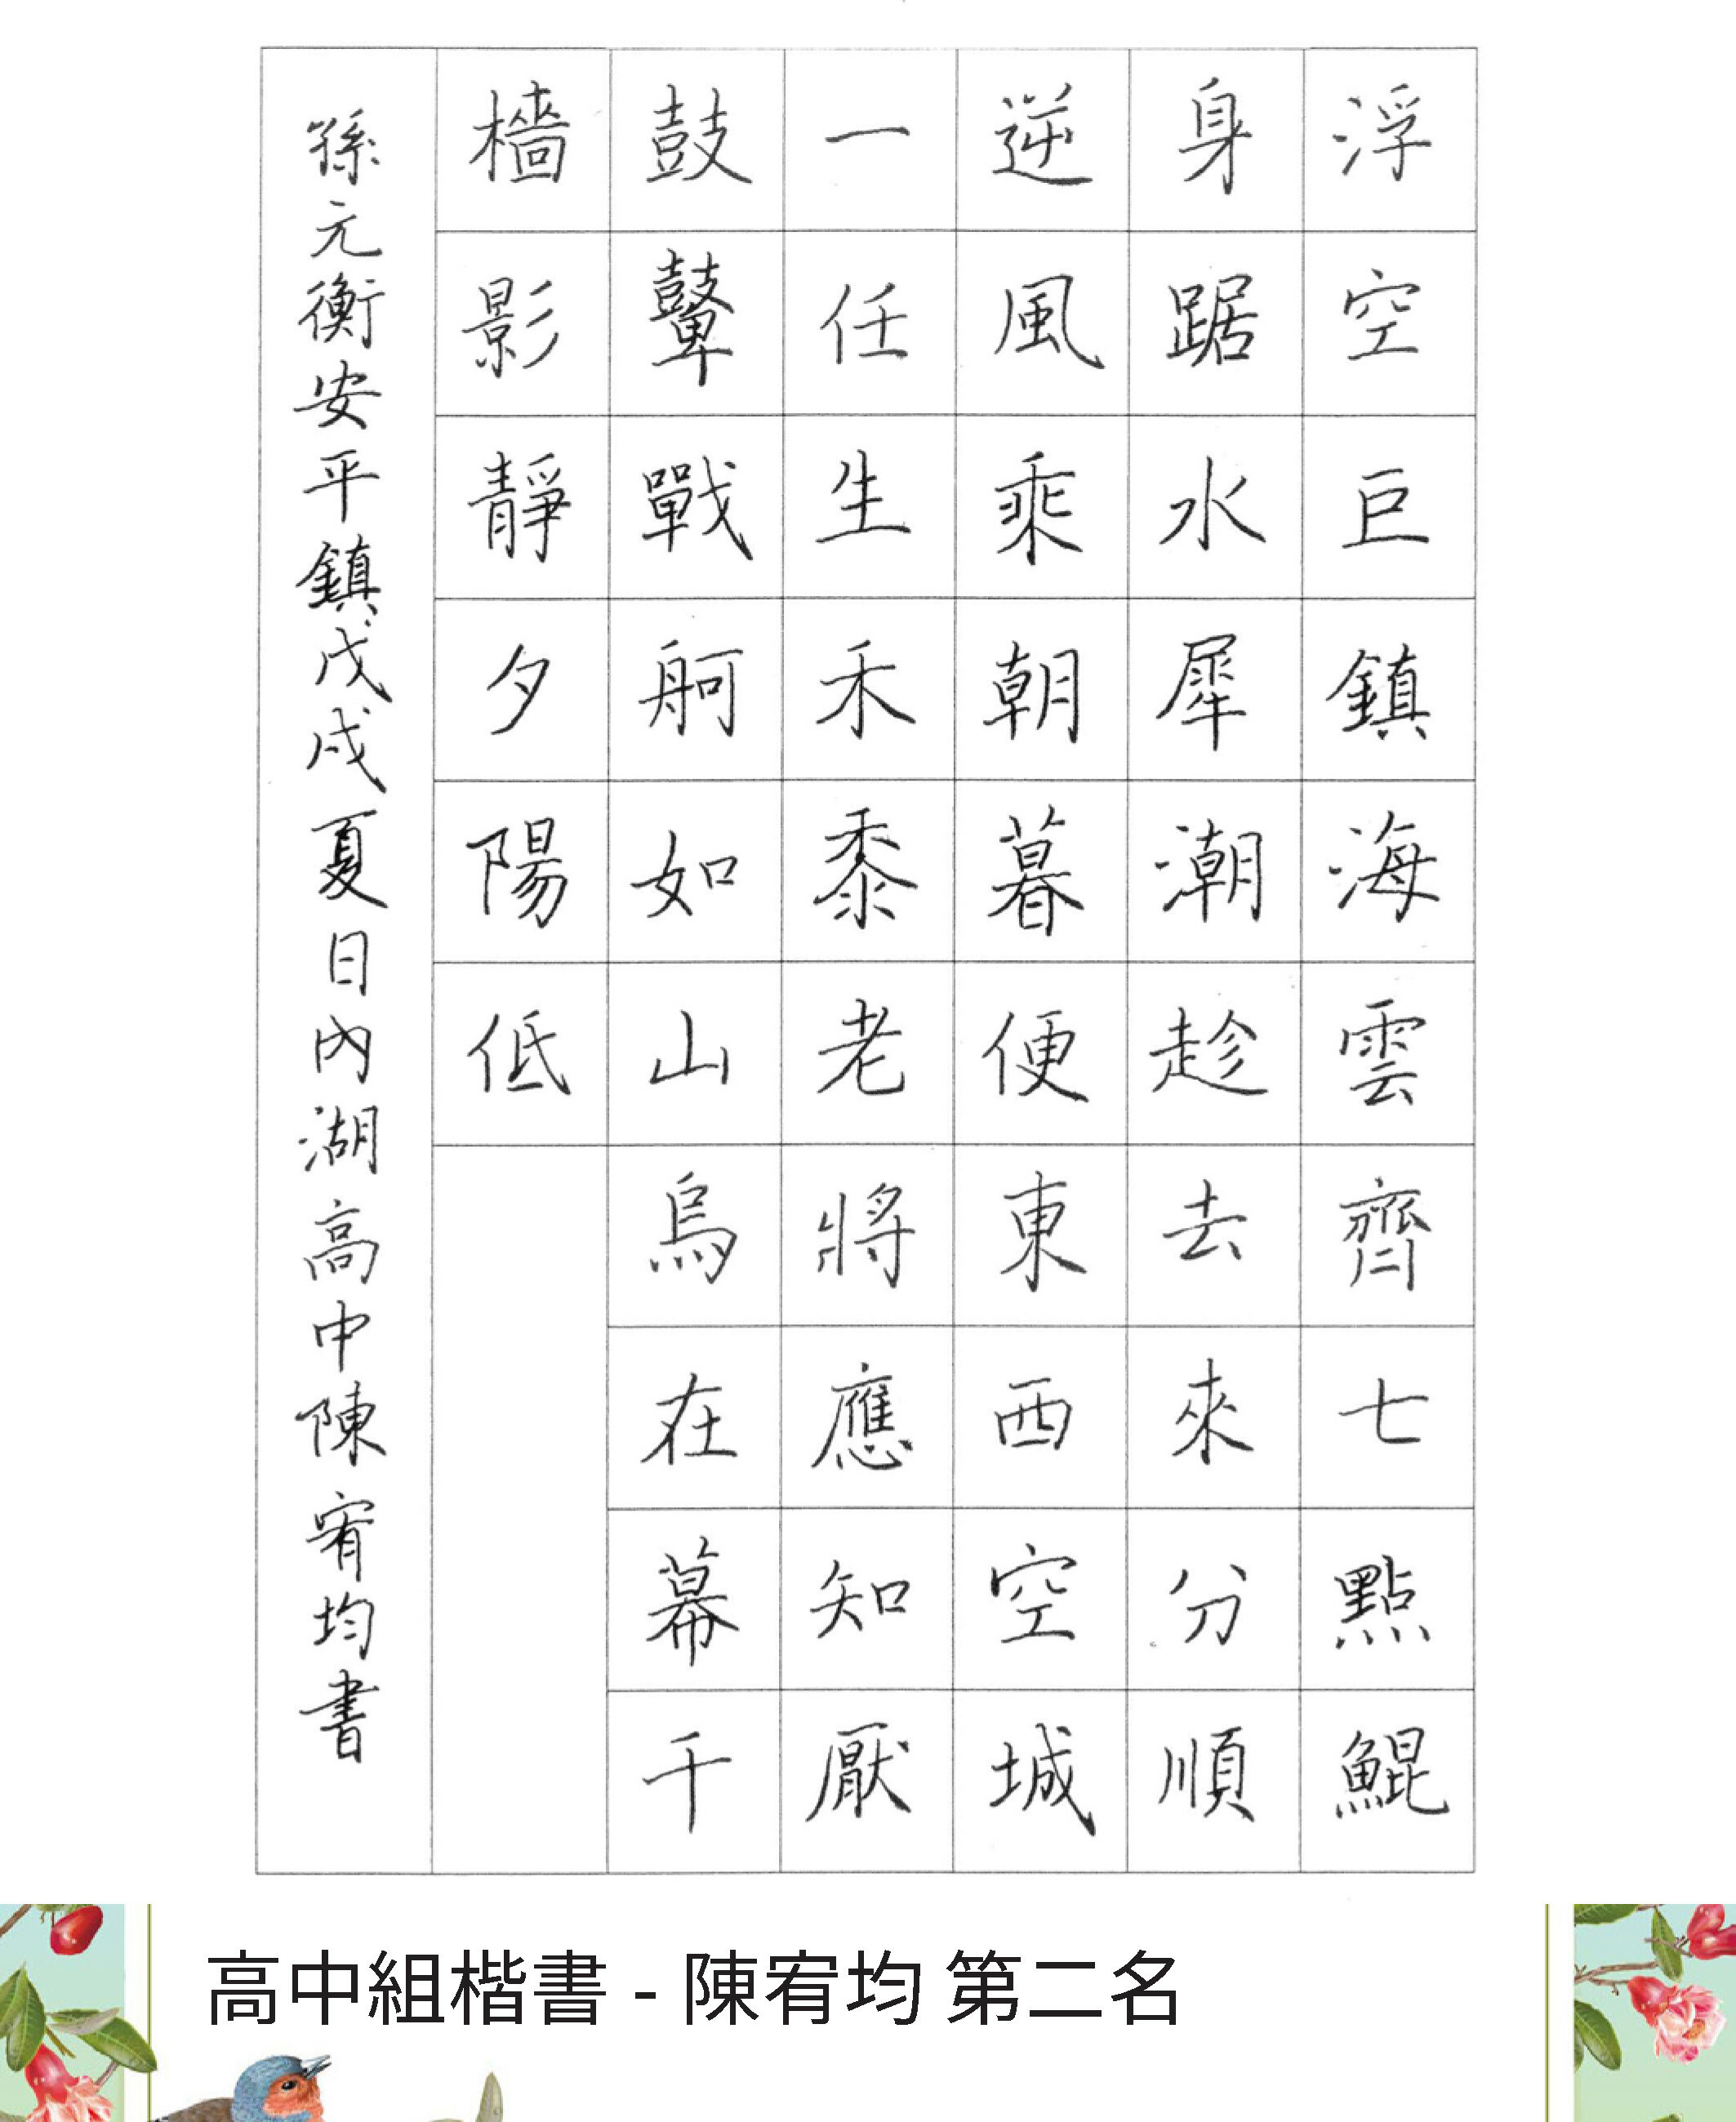 浮空巨鎮海雲齊七點鯤
身踞水犀潮趁去來分順
逆風乘朝暮便東西空城
一任生禾黍老將應知厭
鼓鼙戰舸如山烏在幕千
檣影靜夕陽低
孫元衡安平鎮戊戌夏日內湖高中陳宥均書
高中組楷書 - 陳宥均 第二名